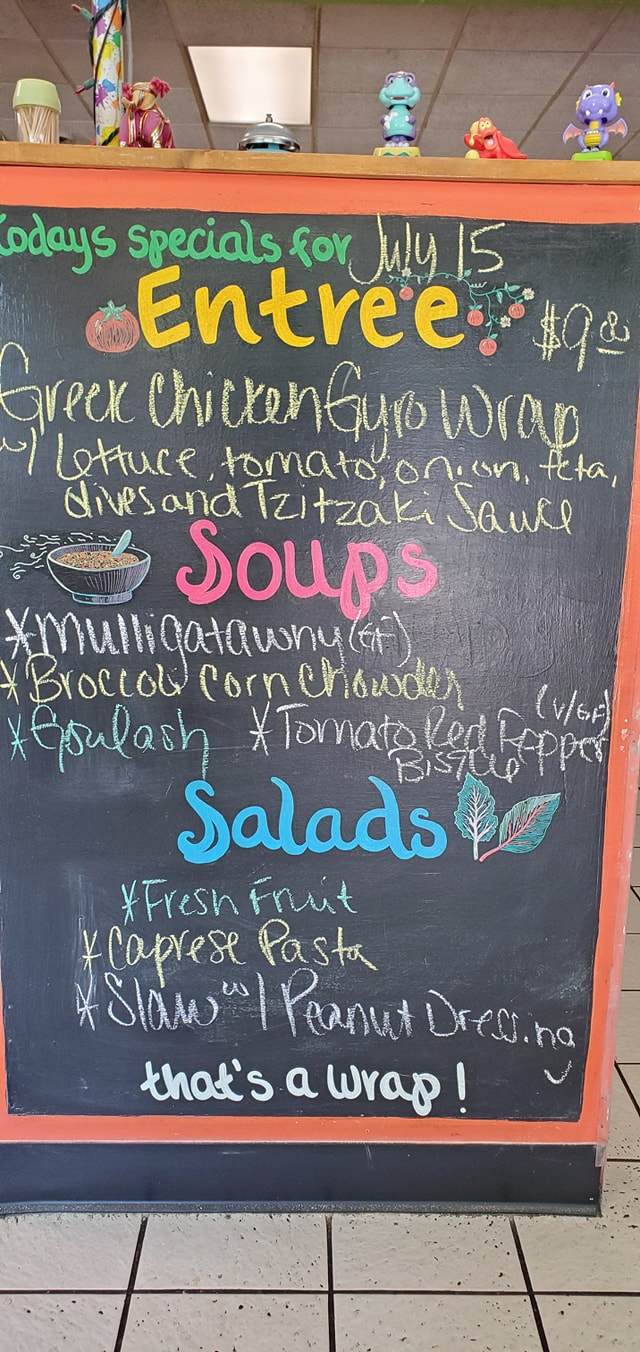 todays specials for July 15
Entree $9.
Greek Chicken Gyro Wrap
w/ Lettuce, tomato, onion, feta,
olives and Tzitzaki Sauce
Soups
*Mulligatawny (GF)
*Broccoli Corn Chowder
*Goulash *Tomato Red Pepper (V/GF)
Bisque
Salads
*Fresh Fruit
*Caprese Pasta
*Slaw w/ Peanut Dressing
that's a wrap!